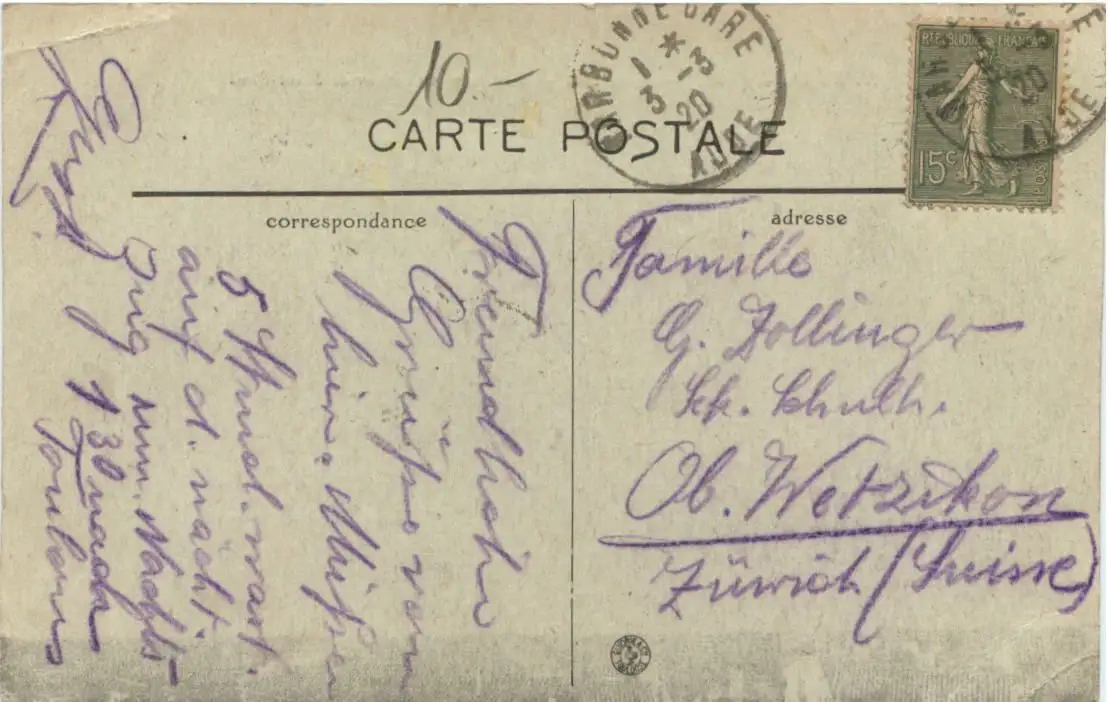 10.-
CARTE POSTALE
NARBONNE GARE
1 * -3
3 20
AUDE
RÉPUBLIQUE FRANÇAISE
15c
POSTES
correspondance
adresse
Freundliche
Grüsse von
hier. Müssen
5 Stund. wart.
auf d. nächst.
Zug um. Nachts
1 30 nach
Famille
G. Zollinger
Ob. Wetzikon
Zürich (Suisse)